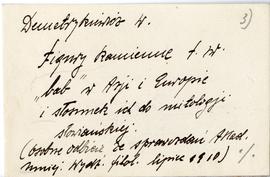 Demetrykiewicz W.
3)
Figury kamienne t. w.
"bab" w Azji i Europie
i stosunek ich do mitologji
słowiańskiej.
(osobne odbicie ze sprawozdań Akad.
Umiej. Wydz. filol. lipiec 1910) ·/.